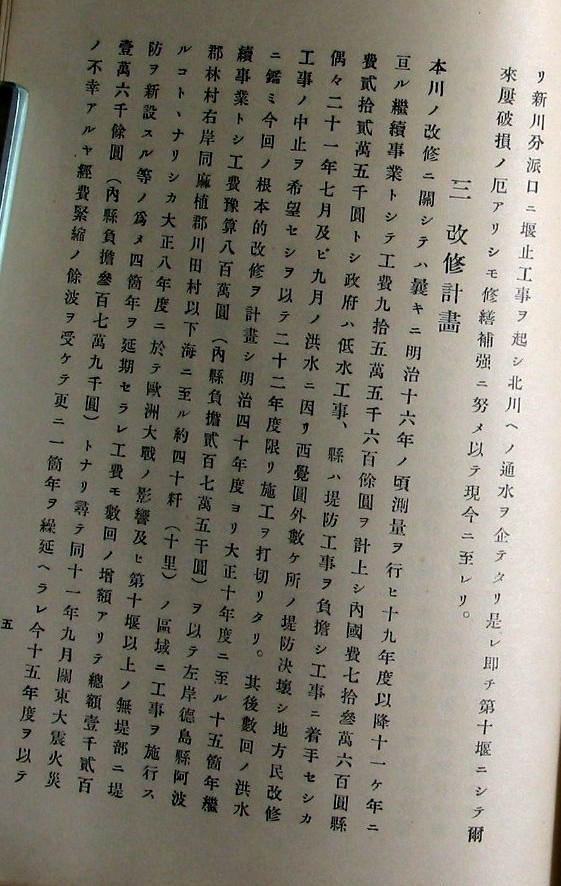 リ新川分派口ニ堰止工事ヲ起シ北川ヘノ通水ヲ企テタリ是レ即チ第十堰ニシテ爾
來屢破損ノ厄アリシモ修繕補强ニ努メ以テ現今ニ至レリ。
三 改修計畫
本川ノ改修ニ關シテハ曩キニ明治十六年ノ頃測量ヲ行ヒ十九年度以降十一ケ年ニ
亘ル繼續事業トシテ工費九拾五萬五千六百餘圓ヲ計上シ內國費七拾參萬六百圓縣
費貳拾貳萬五千圓トシ政府ハ低水工事、縣ハ堤防工事ヲ負擔シ工事ニ着手セシカ
偶々二十一年七月及ビ九月ノ洪水ニ因リ西覺圓外數ケ所ノ堤防決壞シ地方民改修
工事ノ中止ヲ希望セシヲ以テ二十二年度限リ施工ヲ打切リタリ。其後數回ノ洪水
ニ鑑ミ今回ノ根本的改修ヲ計畫シ明治四十年度ヨリ大正十年度ニ至ル十五箇年繼
續事業トシ工費豫算八百萬圓（內縣負擔貳百七萬五千圓）ヲ以テ左岸德島縣阿波
郡林村右岸同麻植郡川田村以下海ニ至ル約四十粁（十里）ノ區域ニ工事ヲ施行ス
ルコトヽナリシカ大正八年度ニ於テ歐洲大戰ノ影響及ヒ第十堰以上ノ無堤部ニ堤
防ヲ新設スル等ノ爲メ四箇年ヲ延期セラレ工費モ數回ノ增額アリテ總額壹千貳百
壹萬六千餘圓（內縣負擔參百七萬九千圓）トナリ尋テ同十一年九月關東大震火災
ノ不幸アルヤ經費緊縮ノ餘波ヲ受ケテ更ニ一箇年ヲ繰延ヘラレ今十五年度ヲ以テ
五